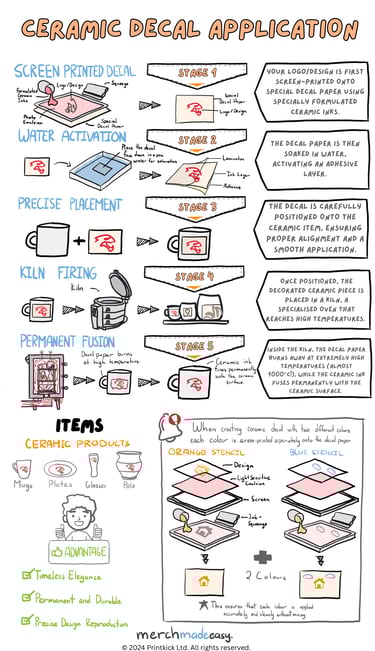 CERAMIC DECAL APPLICATION
SCREEN PRINTED DECAL
STAGE 1
Formulated
Ceramic
Inks
Logo/Design
Squeege
Photo
Emulsion
Special
Decal Paper
Special
Decal Paper
Logo/Design
YOUR LOGO/DESIGN IS FIRST
SCREEN-PRINTED ONTO
SPECIAL DECAL PAPER USING
SPECIALLY FORMULATED
CERAMIC INKS.
WATER ACTIVATION
STAGE 2
Place the decal
face down in a pan
water for activation
Lamination
Ink Layer
Adhesive
THE DECAL PAPER IS THEN
SOAKED IN WATER,
ACTIVATING AN ADHESIVE
LAYER.
PRECISE PLACEMENT
STAGE 3
THE DECAL IS CAREFULLY
POSITIONED ONTO THE
CERAMIC ITEM, ENSURING
PROPER ALIGNMENT AND A
SMOOTH APPLICATION.
KILN FIRING
STAGE 4
Kiln
ONCE POSITIONED, THE
DECORATED CERAMIC PIECE IS
PLACED IN A KILN, A
SPECIALISED OVEN THAT
REACHES HIGH TEMPERATURES.
PERMANENT FUSION
STAGE 5
Decal paper burns
at high temperature.
Ceramic ink
fuses permanently
with the ceramic
surface.
INSIDE THE KILN, THE DECAL PAPER
BURNS AWAY AT EXTREMELY HIGH
TEMPERATURES (ALMOST
1000°C), WHILE THE CERAMIC INK
FUSES PERMANENTLY WITH THE
CERAMIC SURFACE.
ITEMS
CERAMIC PRODUCTS
Mugs
Plates
Glasses
Pots
ADVANTAGE
Timeless Elegance
Permanent and Durable
Precise Design Reproduction
When creating ceramic decal with two different colours
each colour is screen-printed separately onto the decal paper
ORANGE STENCIL
BLUE STENCIL
Design
Light Sensitive
Emulsion
Screen
Ink +
Squeege
2 Colours
This ensures that each colour is applied
accurately and cleanly without mixing
merchmadeeasy.
© 2024 Printkick Ltd. All rights reserved.